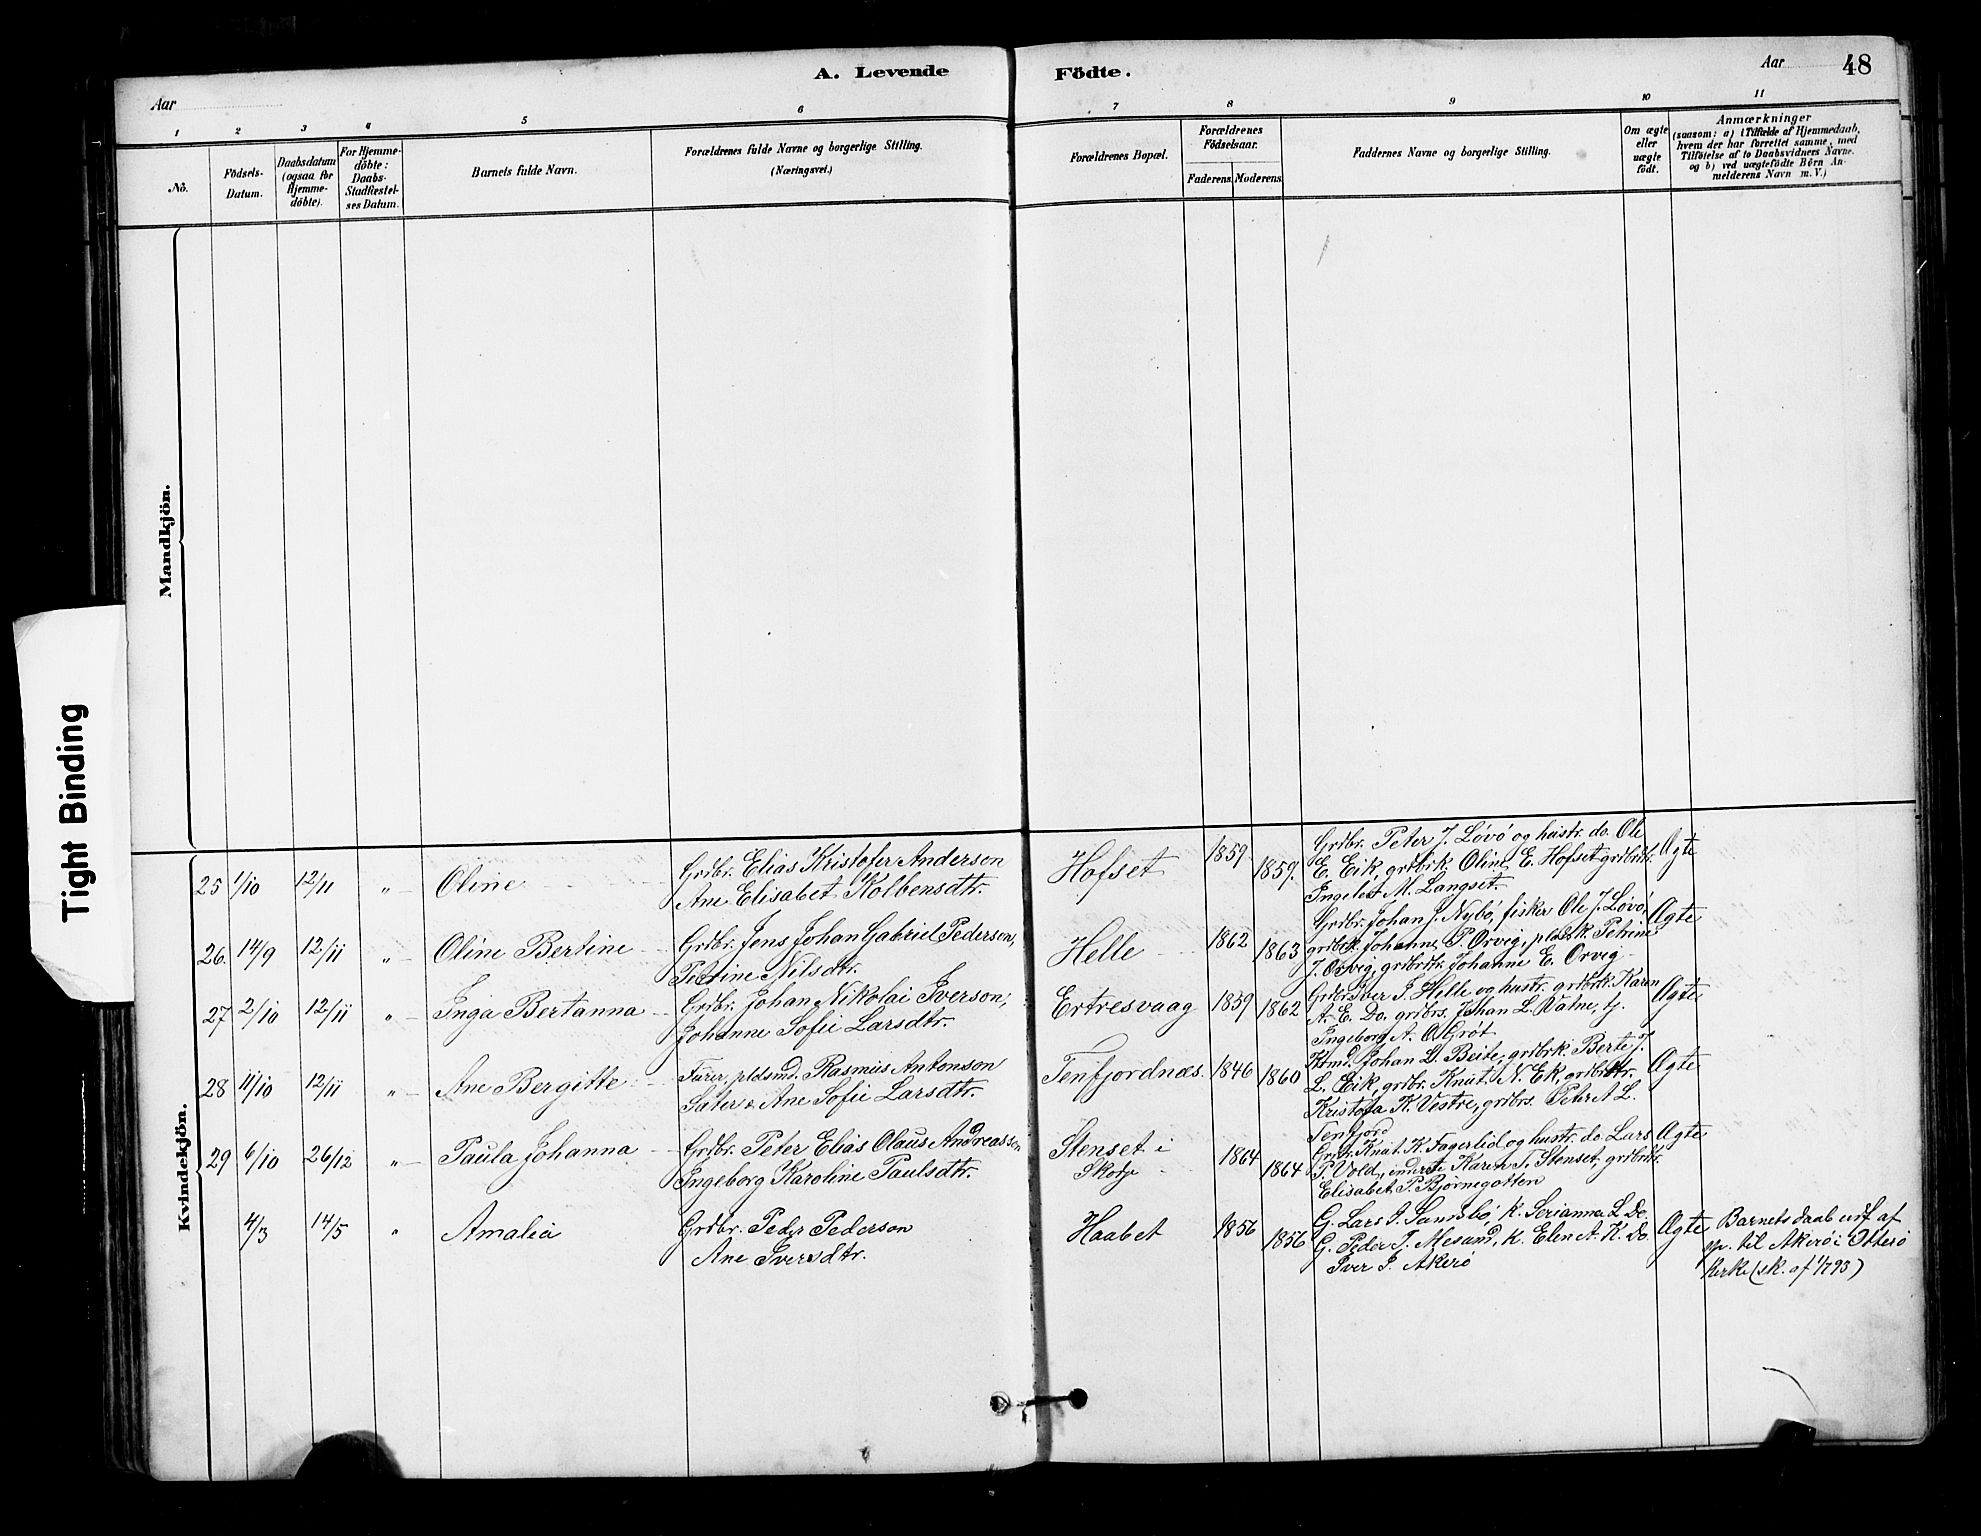 A. Levende Födte.
Aar
Aar 48
1 2 3 4 5 6 7 8 9 10 11
No.
Födsels-Datum.
Daabsdatum (ogsaa for Hjemme-döbte).
For Hjemme-döbte: Daabs-Stadfæstel-ses Datum.
Barnets fulde Navn.
Forældrenes fulde Navne og borgerlige Stilling.
(Næringsvei.)
Forældrenes Bopæl.
Forældrenes Födselsaar.
Faderens. Moderens.
Faddernes Navne og borgerlige Stilling.
Om ægte eller uægte födt.
Anmærkninger
(saasom: a) i Tilfælde af Hjemmedaab,
hvem der har forrettet samme, med
Tilföielse af to Daabsvidners Navne.
og b) ved uægtefödte Börn An-
melderens Navn m. V.)
Mandkjön.
Tight Binding
Kvindekjön.
25 1/10 12/11 " Oline
Grdbr. Elias Kristofer Anderson
Ane Elisabet Kolbensdtr.
Hofset 1859 1859.
Grdbr. Peter J. Løvø og hustr. do. Ole
E. Eik, grdbrk. Oline E. Hofset grdbrdtr.
Ingeleif M. Langset.
Ægte
26. 14/9 12/11 " Oline Bertine
Grdbr. Jens Johan Gabriel Pederson,
Petrine Nilsdtr.
Helle 1862 1863
Grdbr. Johan J. Nybø, fisker Ole J. Løvø,
grdbrk. Johanne P. Orvig, pladsk. Petrine
J. Orvig, grdbrdtr. Johanne E. Orvig
Ægte
27 2/10 12/11 " Inga Bertanna
Grdbr. Johan Nikolai Iverson,
Johanne Sofie Larsdtr.
Ertresvaag 1859 1862
Grdbr. Iver I. Helle og hustr. grdbrk. Karen
A. E. Do. grdbrs. Johan L. Vatne, tj.
Ingeborg A. O. Grøt
Ægte
28 11/10 12/11 " Ane Bergitte
Furer, pldsmd. Rasmus Antonson
Sæter & Ane Sofie Larsdtr.
Tenfjordnæs. 1846 1860
Kmd. Johan D. Beite, grdbrk. Berte J.
L. Eik, grdbr. Knut N. Ek, grdbrdtr.
Kristofa K. Vestre, grdbrs. Peter A L.
Tenfjord
Ægte
29 6/10 26/12 " Paula Johanna
Grdbr. Peter Elias Olaus Andreassen
Ingeborg Karoline Paulsdtr.
Stenset i
Skodje
1864 1864
Grdbr. Knut K. Fagerlid og hustr. do. Lars
P. Vold, inderste Karen T. Stenset, grdbrdtr.
Elisabet P. Bjørnegotten
Ægte
4/3 14/5 " Amalia
Grdbr. Peder Pederson
Ane Iversdtr.
Haabet 1856 1856
G. Lars I. Sandsbø, k. Serianna L. Do.
G. Peder T. Mesund, k. Elen A. K. Do.
Iver I. Akerø
Ægte
Barnets daab udf af
sp. til Akerø i Otterø
kirke (sk. af 1/7 93)